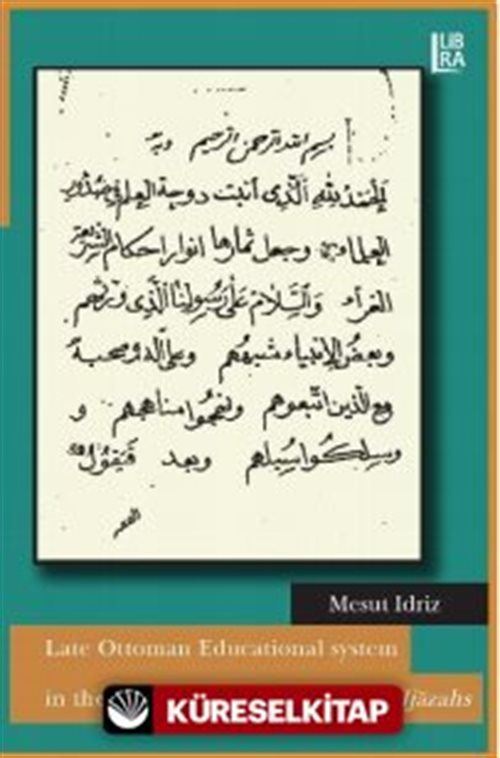 LiB
RA
بسم الله الرحمن الرحيم وبه
الحمد لله الذى انبت دوحة العلم فى صدور
العلماء وجعل ثمارها انوار احكام الشريعة
الغراء والسلام على رسولنا الذى ورثهم
وبعض الانبياء شبههم وعلى اله وصحبه
مع الذين اتبعوهم ونهجوا مناهجهم و
وسلكوا سبيلهم وبعد فيقول
الفقير
Mesut Idriz
Late Ottoman Educational system
in the Ijāzahs
KÜRESELKİTAP